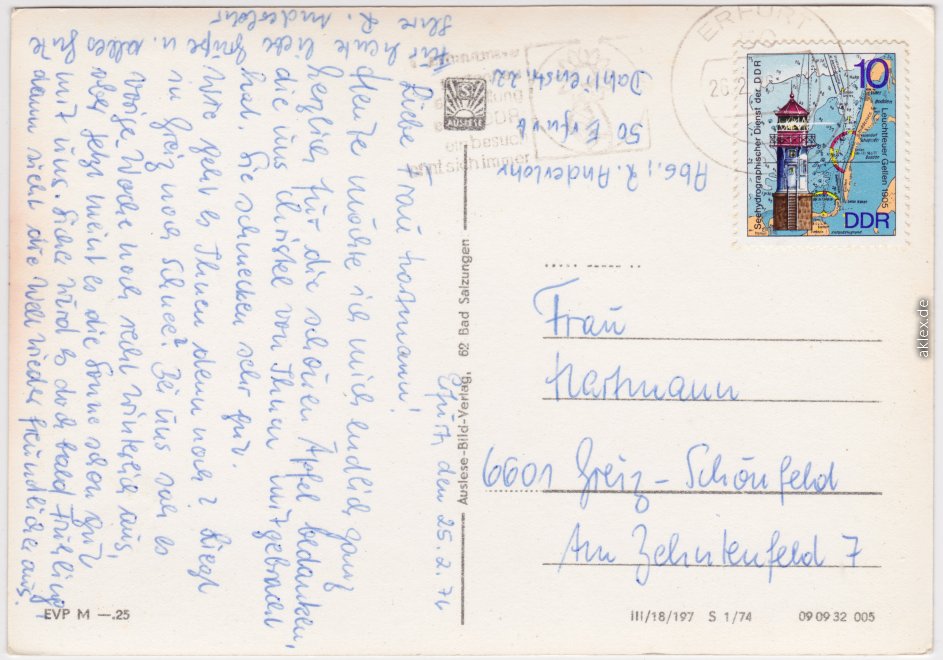 Erfurt, den 25.2.76
Liebe Frau Hartmann!
Heute möchte ich mich endlich ganz
herzlich für die schönen Äpfel bedanken,
die uns Christel von Ihnen mitgebracht
hat. Sie schmecken sehr gut.
Wie geht es Ihnen denn noch? Liegt
in Greiz noch Schnee? Bei uns sah es
vorige Woche noch recht winterlich aus,
aber jetzt meint es die Sonne schon gut
mit uns. Sicher wird es doch bald Frühling,
denn sieht die Welt wieder freundlicher aus.
Für heute liebe Grüße u. alles Gute
Ihre L. Anderlohr
Abs.: L. Anderlohr
50 Erfurt
Dahlienstr. 22
AUSLESE
Auslese-Bild-Verlag, 62 Bad Salzungen
ERFURT
50
ein Besuch
lohnt sich immer
10
Seehydrographischer Dienst der DDR
Leuchtfeuer Gellen 1905
DDR
Frau
Hartmann
6601 Greiz-Schönfeld
Am Zehntenfeld 7
EVP M —.25
III/18/197 S 1/74 09 09 32 005
aklex.de